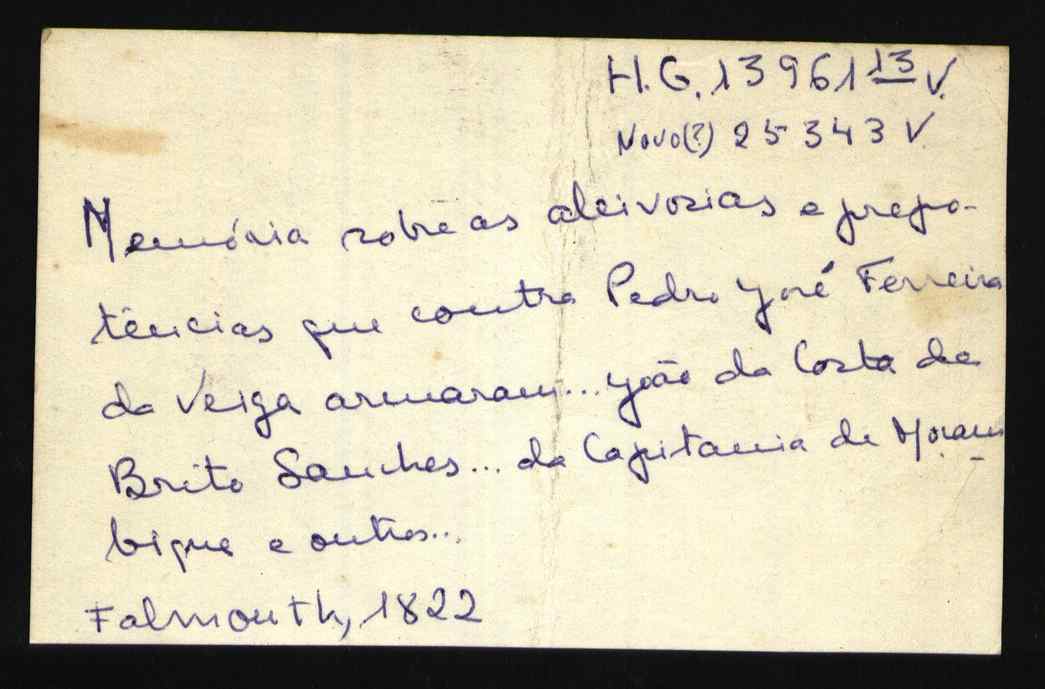 H.G. 13961 13 V.
Novo(?) 25343 V.
Memória sobre as aleivosias e prepo-
tências que contra Pedro José Ferreira
da Veiga armaram... João da Costa de
Brito Sanches... da Capitania de Moçam
bique e outros...
Falmouth, 1822